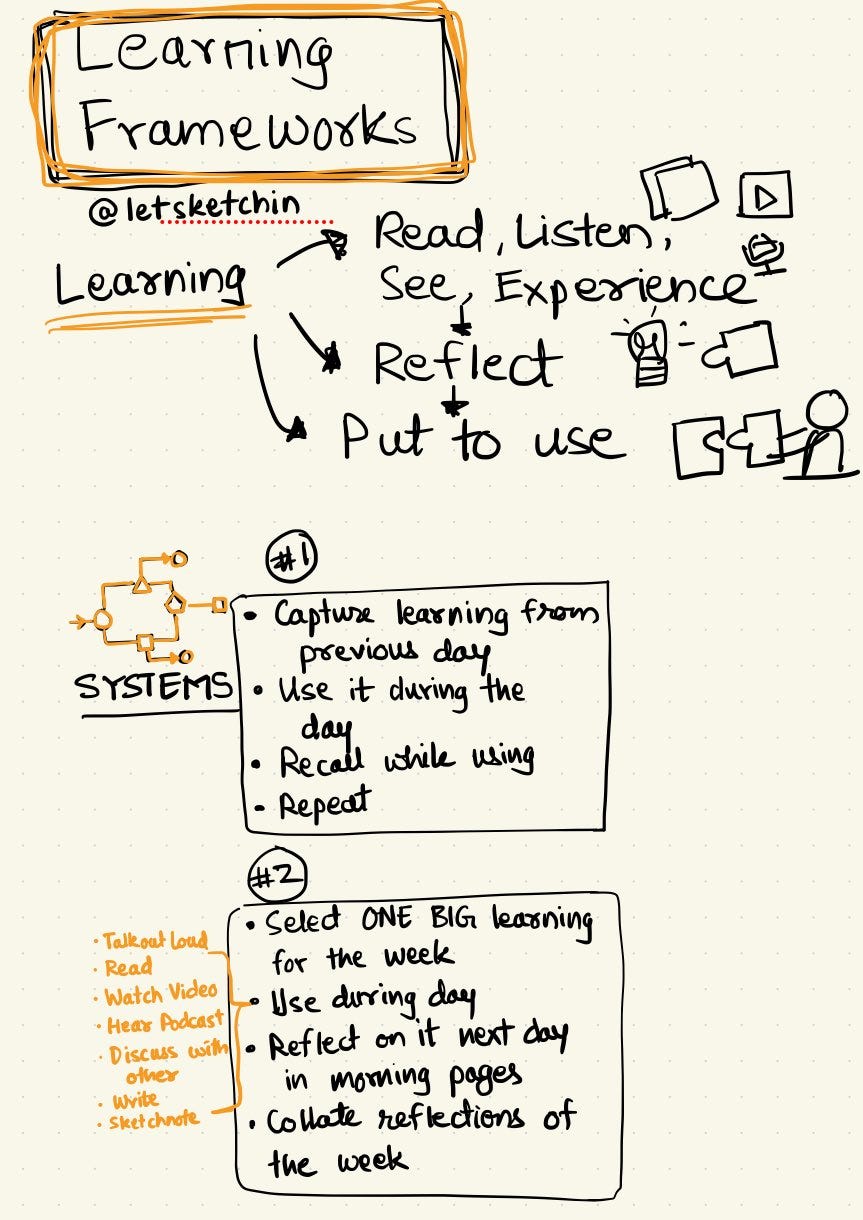 Learning
Frameworks
@letsketchin
Learning
Read, Listen,
See, Experience
Reflect
Put to use
SYSTEMS
#1
• Capture learning from
previous day
• Use it during the
day
• Recall while using
- Repeat
#2
• Select ONE BIG learning
for the week
• Use during day
• Reflect on it next day
in morning pages
• Collate reflections of
the week
• Talk out Loud
• Read
• Watch Video
• Hear Podcast
• Discuss with
other
• Write
• Sketchnote